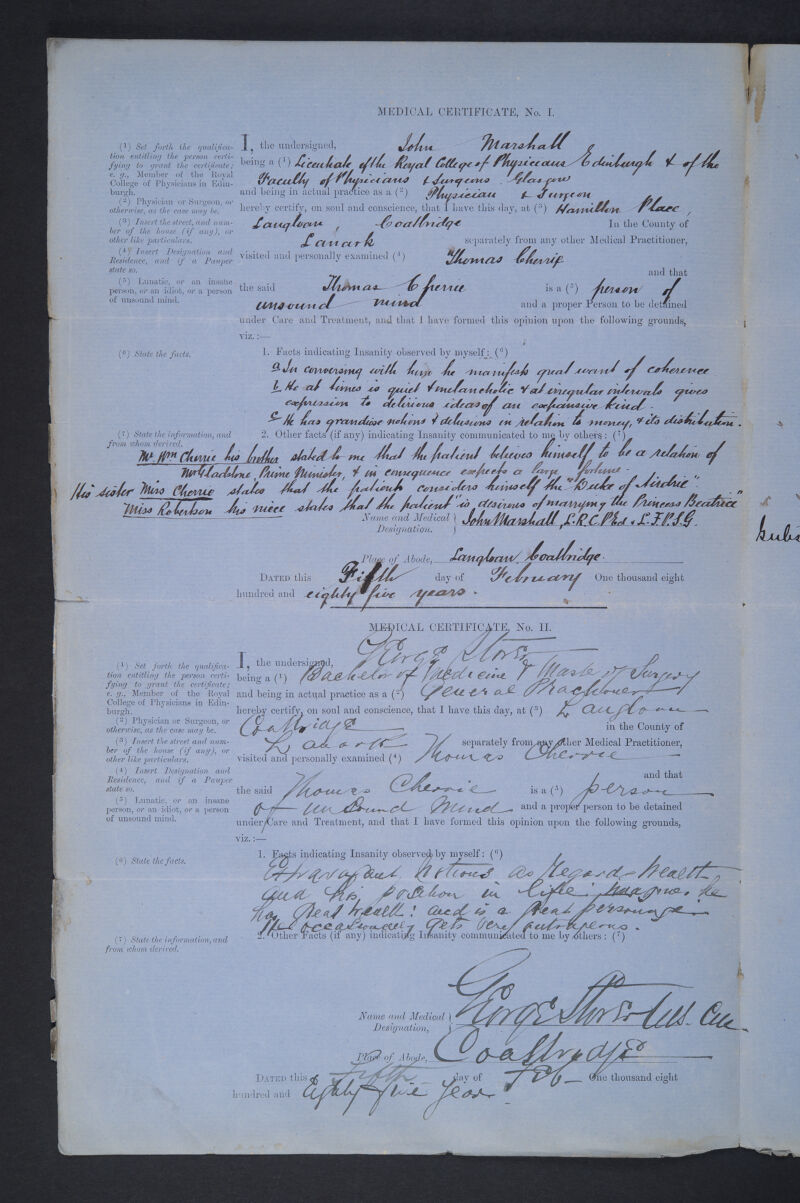 MEDICAL CERTIFICATE, No. I.
(1) Set forth the qualifica-
tion entitling the person certi-
fying to grant the certificate;
e. g., Member of the Royal
College of Physicians in Edin-
burgh.
(2) Physician or Surgeon, or
otherwise, as the case may be.
(3) Insert the street, and num-
ber of the house (if any), or
other like particulars.
(4) Insert Designation and
Residence, and if a Pauper
state so.
(5) Lunatic, or an insane
person, or an idiot, or a person
of unsound mind.
I, the undersigned, John Marshall
being a (1) Licentiate of the Royal College of Physicians Edinburgh & of the
Faculty of Physicians & Surgeons Glasgow
and being in actual practice as a (2) Physician & Surgeon
hereby certify, on soul and conscience, that I have this day, at (3) Hamilton Place,
Langloan, Coatbridge In the County of
Lanark separately from any other Medical Practitioner,
visited and personally examined (4) Thomas Cherrie
and that
the said Thomas Cherrie is a (5) person of
unsound mind and a proper Person to be detained
under Care and Treatment, and that I have formed this opinion upon the following grounds,
viz.:—
(6) State the facts.
1. Facts indicating Insanity observed by myself: (6)
a In conversing with him he manifests great want of coherence
b He at times is quiet & melancholic & at irregular intervals gives
expression to delirious ideas of an expansive kind.
c He has grandiose notions & delusions in relation to money, & its distribution.
(7) State the information, and
from whom derived.
2. Other facts (if any) indicating Insanity communicated to me by others: (7)
Mr Wm Cherrie his brother stated to me that the patient believes himself to be a relation of
Mr Gladstone, Prime Minister, & in consequence expects a large fortune.
His sister Miss Cherrie states that the patient considers himself the "Duke of Airdrie"
Miss Robertson his niece states that the patient "is desirous of marrying the Princess Beatrice"
Name and Medical Designation. John Marshall, L.R.C.P.Ed. & L.F.P.S.G.
Place of Abode, Langloan, Coatbridge.
DATED this Fifth day of February One thousand eight
hundred and eighty five years.
MEDICAL CERTIFICATE, No. II.
(1) Set forth the qualifica-
tion entitling the person certi-
fying to grant the certificate;
e. g., Member of the Royal
College of Physicians in Edin-
burgh.
(2) Physician or Surgeon, or
otherwise, as the case may be.
(3) Insert the street and num-
ber of the house (if any), or
other like particulars.
(4) Insert Designation and
Residence, and if a Pauper
state so.
(5) Lunatic, or an insane
person, or an idiot, or a person
of unsound mind.
I, the undersigned, George
being a (1) Bachelor of Medicine & Master of Surgery
and being in actual practice as a (2) General Practitioner
hereby certify, on soul and conscience, that I have this day, at (3) Langloan
Coatbridge in the County of
Lanark separately from any other Medical Practitioner,
visited and personally examined (4) Thomas Cherrie
and that
the said Thomas Cherrie is a (5) person
of unsound mind and a proper person to be detained
under Care and Treatment, and that I have formed this opinion upon the following grounds,
viz.:—
(6) State the facts.
1. Facts indicating Insanity observed by myself: (6)
Extravagant notions as regards Wealth
and his position in life imagines he
has great wealth: and is a great personage
He occasionally gets very outrageous.
(7) State the information, and
from whom derived.
2. Other Facts (if any) indicating Insanity communicated to me by others: (7)
Name and Medical Designation, George
Place of Abode, Coatbridge
DATED this Fifth day of Feb One thousand eight
hundred and Eighty five years